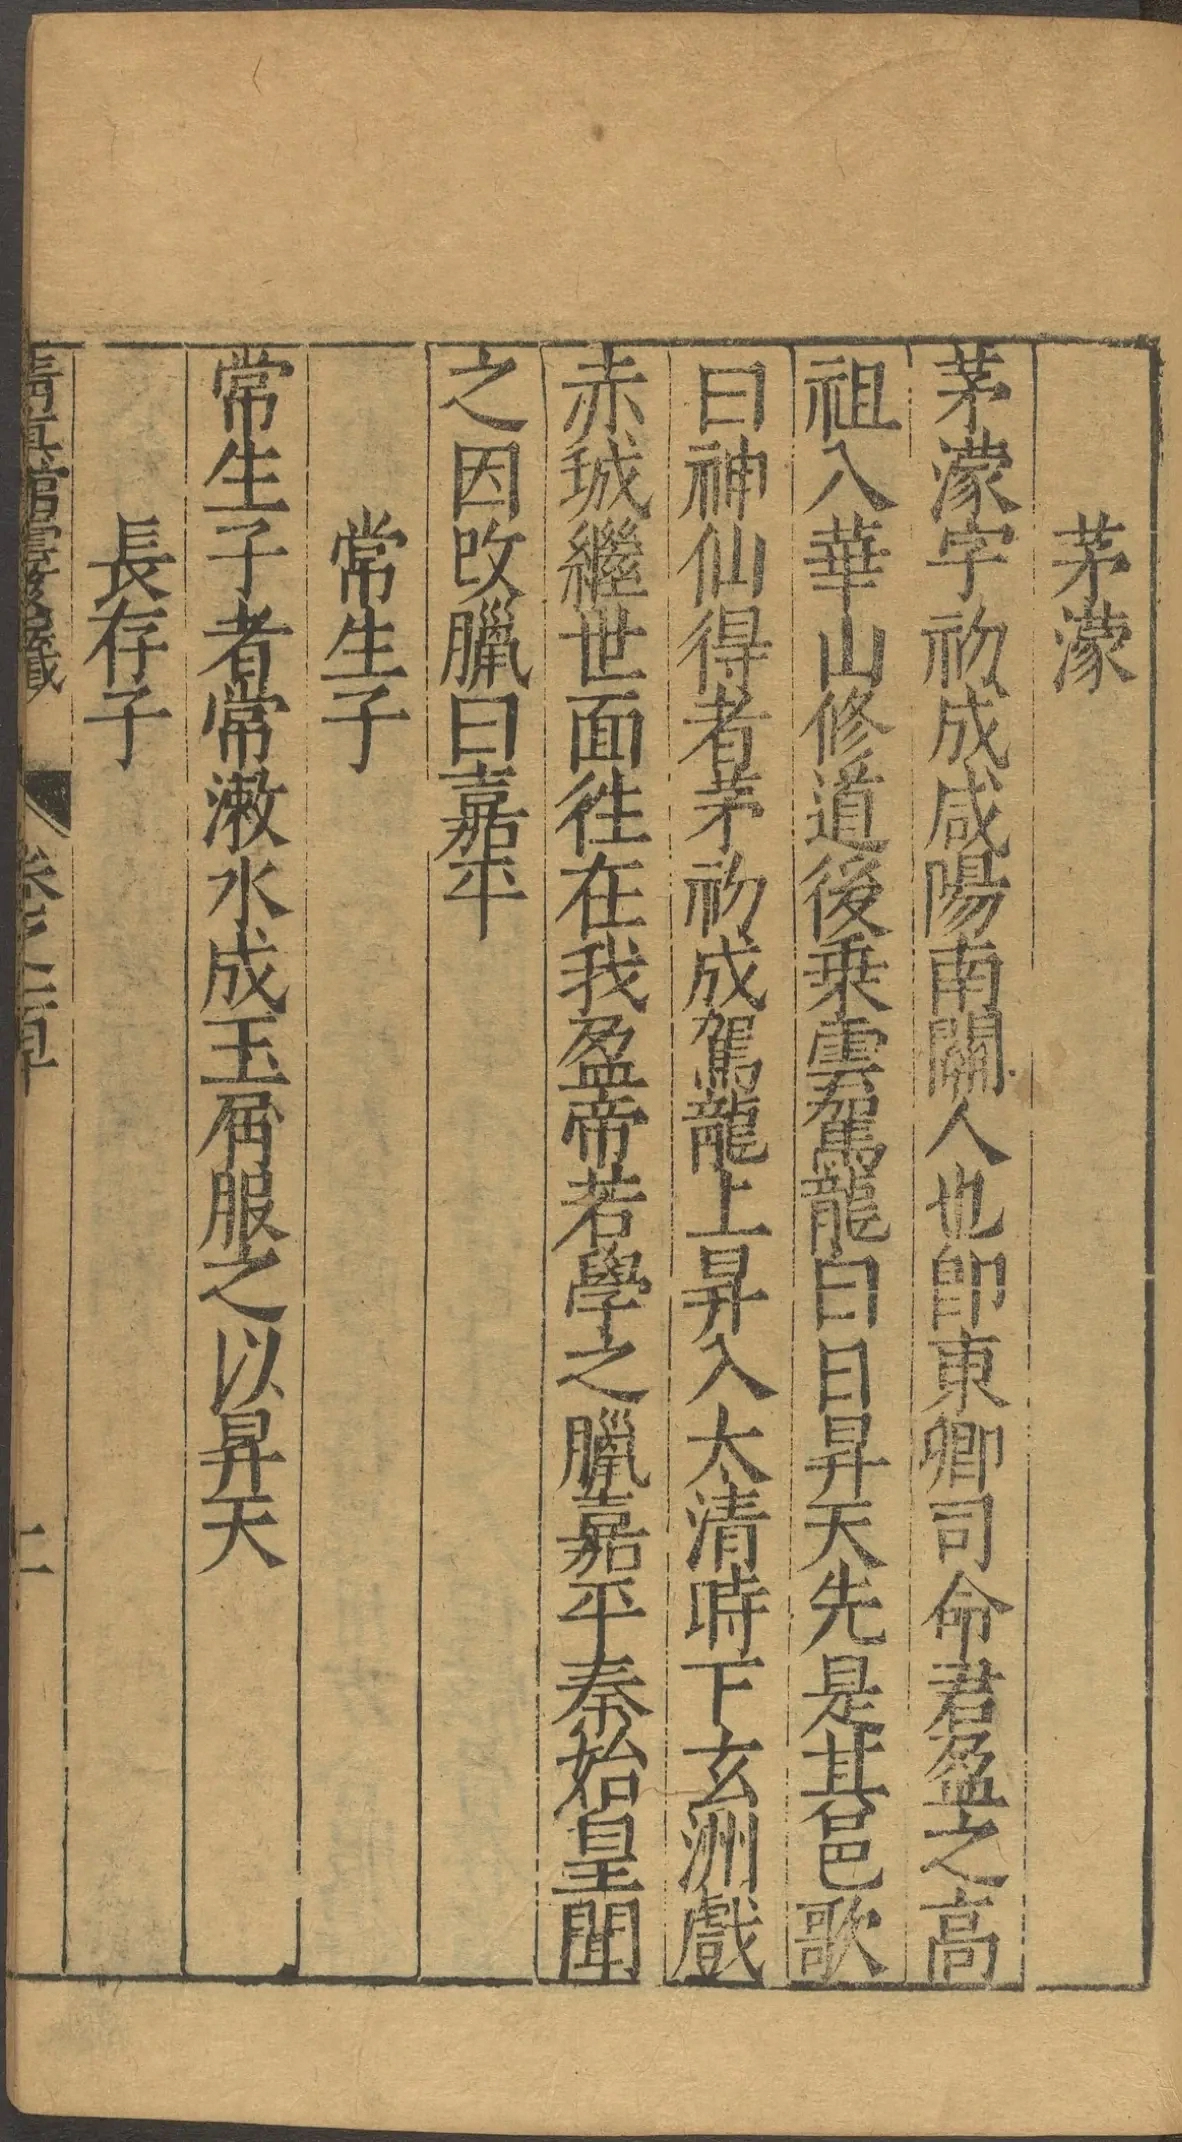 茅濛
茅濛字初成咸陽南關人也即東卿司命君盈之高
祖入華山修道後乗雲駕龍白日昇天先是其邑歌
曰神仙得者茅初成駕龍上昇入太清時下玄洲戲
赤城繼世而徃在我盈帝若學之臘嘉平秦始皇聞
之因改臘曰嘉平
常生子
常生子者常漱水成玉屑服之以昇天
長存子